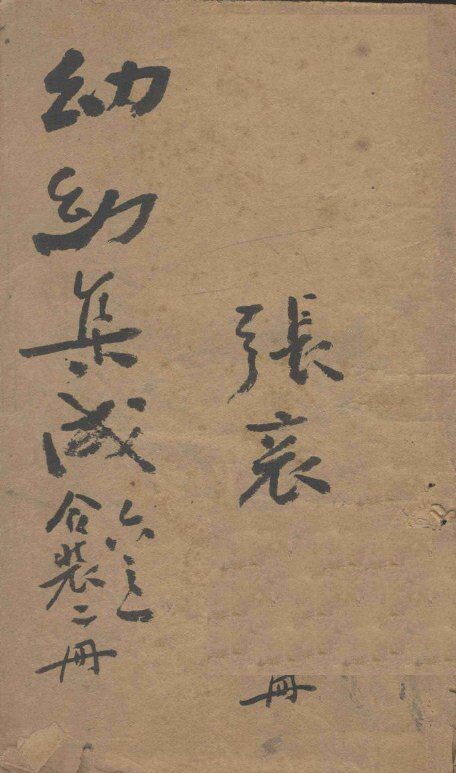 張
冊
幼幼集成
六
合裝二冊